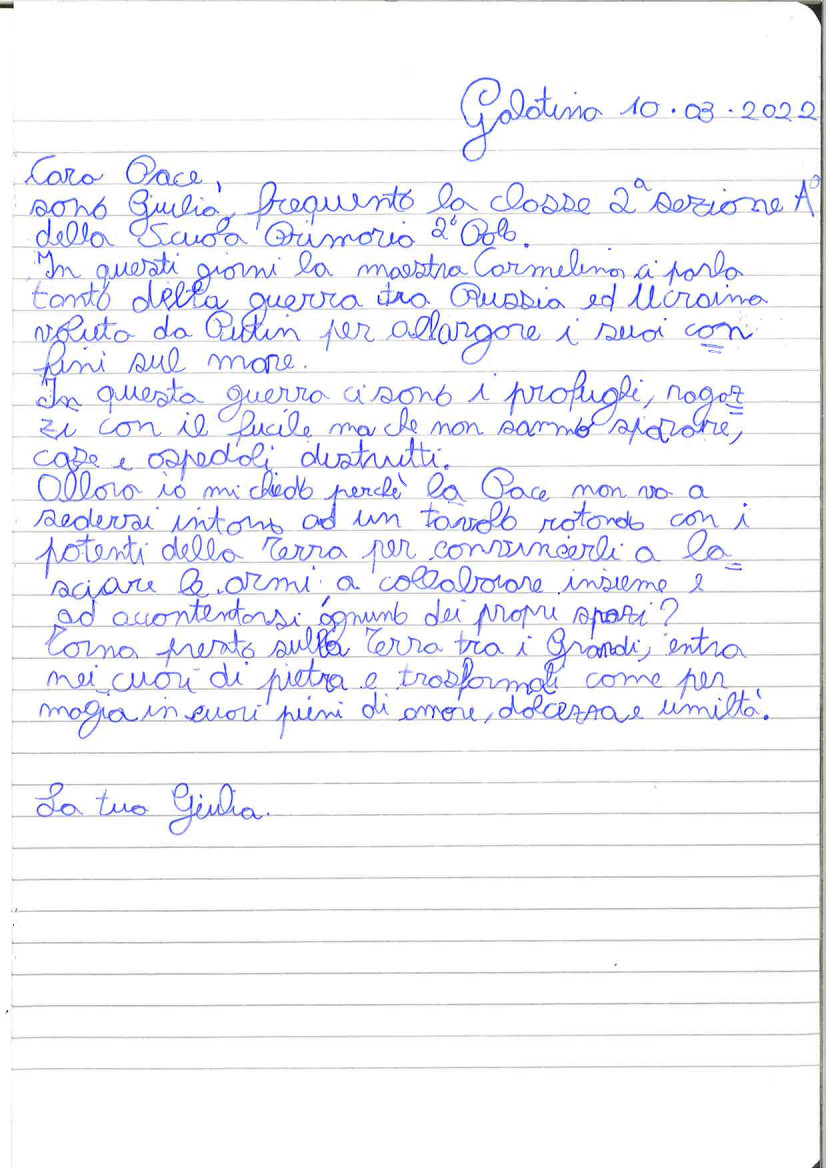 Galatina 10.03.2022
Cara Pace,
sono Giulia, frequento la classe 2ª sezione A
della Scuola Primaria 2° Polo.
In questi giorni la maestra Carmelina ci parla
tanto della guerra tra Russia ed Ucraina
voluta da Putin per allargare i suoi con=
fini sul mare.
In questa guerra ci sono i profughi, ragaz=
zi con il fucile ma che non sanno sparare,
case e ospedali distrutti.
Allora io mi chiedo perchè la Pace non va a
sedersi intorno ad un tavolo rotondo con i
potenti della Terra per convincerli a la=
sciare le armi, a collaborare insieme e
ad accontentarsi ognuno dei propri spazi?
Torna presto sulla Terra tra i Grandi, entra
nei cuori di pietra e trasformali come per
magia in cuori pieni di amore, dolcezza e umiltà.
La tua Giulia.